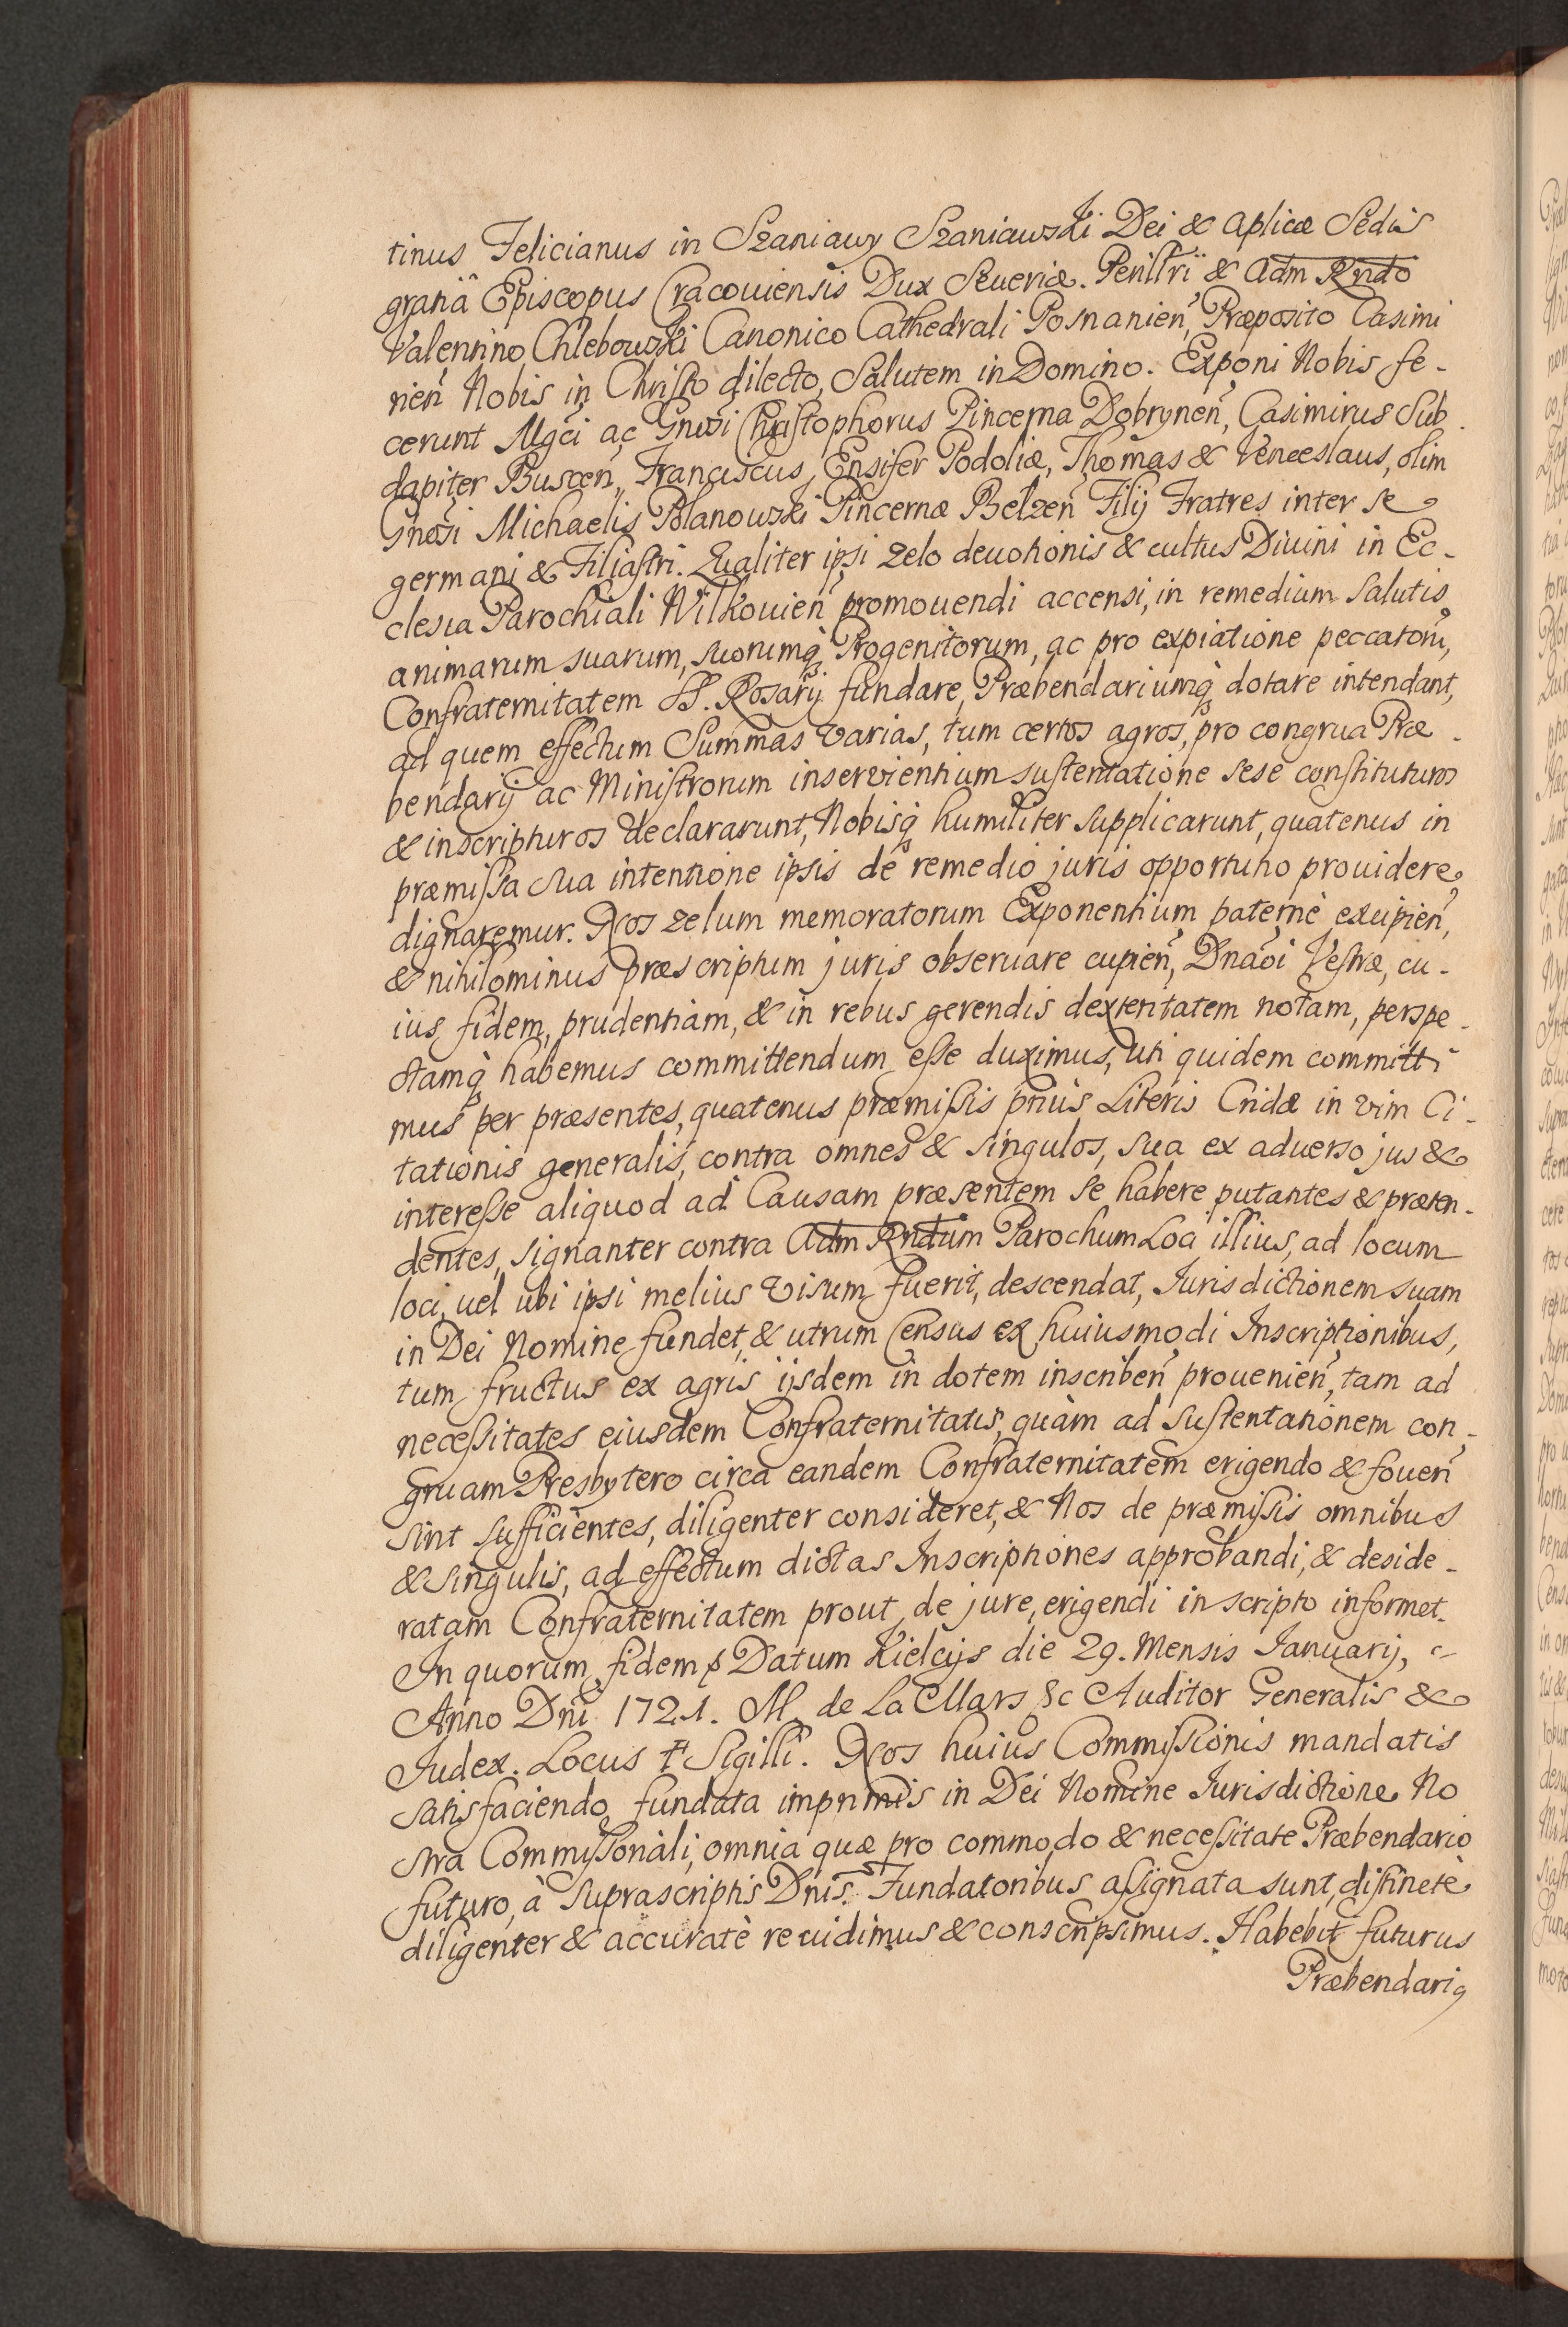 tinus Felicianus in Szaniawy Szaniawski Dei & Aplicæ Sedis
gratiâ Episcopus Cracouiensis Dux Seueriæ. Perillri & Adm Rndo
Valentino Chlebowski Canonico Cathedrali Posnanien̄, Præposito Casimi
rien̄ Nobis in Christo dilecto, Salutem in Domino. Exponi Nobis fe-
cerunt Mgci ac Gnosi Christophorus Pincerna Dobrynen̄, Casimirus Sub
dapiter Buscen̄, Franciscus Ensifer Podoliæ, Thomas & Venceslaus, olim
Gnosi Michaelis Polanowski Pincernæ Belzen̄ Filij Fratres inter se
germani & Filiastri. Qualiter ipsi zelo deuotionis & cultus Diuini in Ec-
clesia Parochiali Wilkouien̄ promouendi accensi, in remedium salutis
animarum suarum, suorumq́ Progenitorum, ac pro expiatione peccatorū,
Confraternitatem SS. Rosarij fundare, Præbendariumq́ dotare intendant,
ad quem effectum Summas varias, tum certos agros, pro congrua Præ-
bendarij ac Ministrorum inservientium sustentatione sese constituturos
& inscripturos declararunt, Nobisq́ humiliter supplicarunt, quatenus in
præmissa sua intentione ipsis de remedio juris opportuno prouidere
dignaremur. Nos zelum memoratorum Exponentium paternè excipien̄,
& nihilominus præscriptum juris obseruare cupien̄, Dnaōi Vestræ, cu-
ius fidem, prudentiam, & in rebus gerendis dexteritatem notam, perspe-
ctamq́ habemus committendum esse duximus, uti quidem committi-
mus per præsentes, quatenus præmissis prius Literis Cridæ in vim Ci-
tationis generalis, contra omnes & singulos, sua ex aduerso jus &
interesse aliquod ad Causam præsentem se habere putantes & præten-
dentes, signanter contra Adm Rndum Parochum Loci illius, ad locum
loci, uel ubi ipsi melius visum fuerit, descendat, Iurisdictionem suam
in Dei Nomine fundet, & utrum Census ex huiusmodi Inscriptionibus,
tum fructus ex agris ijsdem in dotem inscriben̄ prouenien̄, tam ad
necessitates eiusdem Confraternitatis, quàm ad sustentationem con-
gruam Presbytero circa eandem Confraternitatem erigendo & fouen̄
sint sufficientes, diligenter consideret, & Nos de præmissis omnibus
& singulis, ad effectum dictas Inscriptiones approbandi, & deside-
ratam Confraternitatem prout de jure, erigendi in scripto informet.
In quorum fidem & Datum Kielcijs die 29. Mensis Ianuarij,
Anno Dni 1721. M. de La Mars &c Auditor Generalis &
Iudex. Locus † Sigilli. Nos huius Commissionis mandatis
satisfaciendo fundata imprimis in Dei Nomine Iurisdictione No
stra Commissoriali, omnia quæ pro commodo & necessitate Præbendario
futuro, à suprascriptis Dnis Fundatoribus assignata sunt, distinctè
diligenter & accuratè reuidimus & conscripsimus. Habebit futurus
Præbendari9